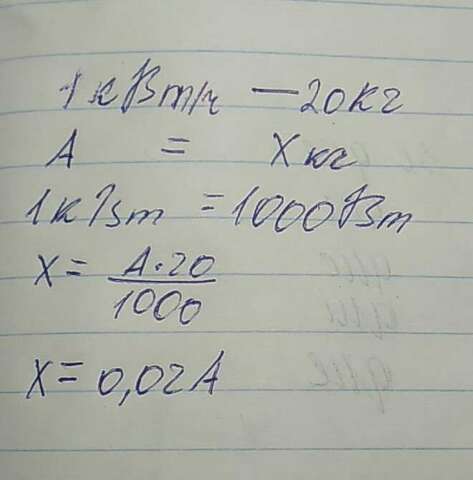 1 кВт/ч — 20 кг
А = Х кг
1 кВт = 1000 Вт
Х = А·20
1000
Х = 0,02А